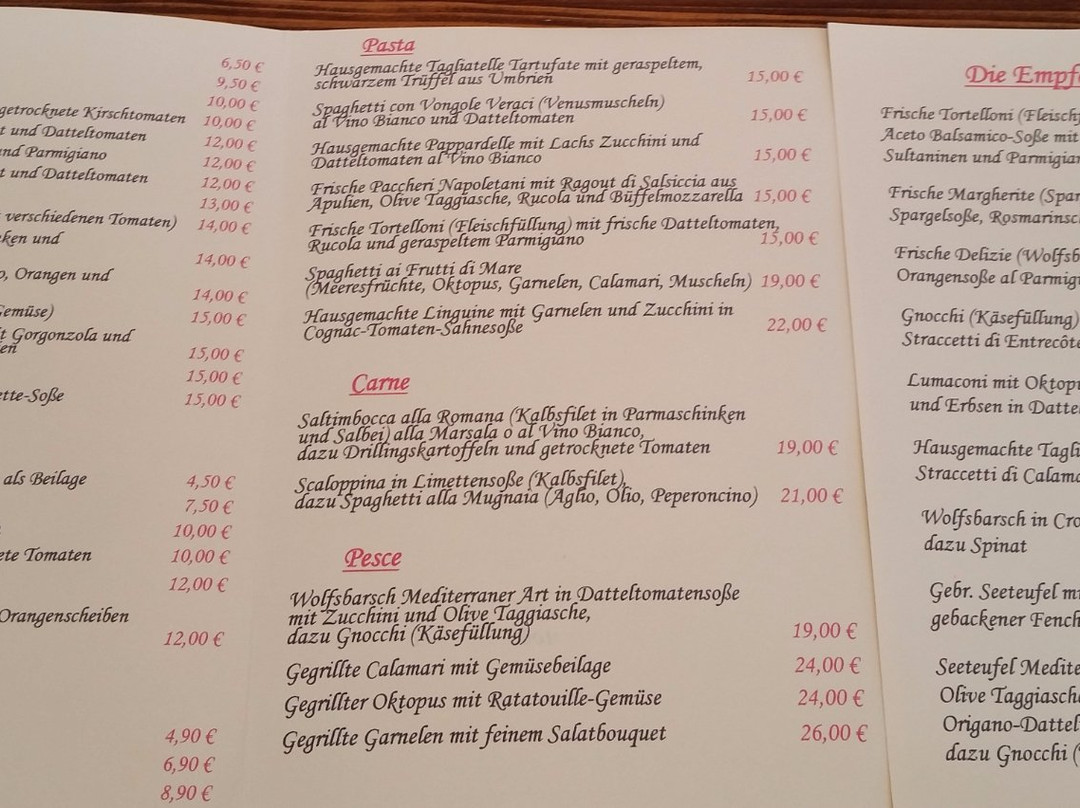 6,50 €
9,50 €
10,00 €
getrocknete Kirschtomaten 10,00 €
t und Datteltomaten 12,00 €
und Parmigiano 12,00 €
t und Datteltomaten 12,00 €
13,00 €
verschiedenen Tomaten) 14,00 €
ken und
14,00 €
o, Orangen und
14,00 €
Gemüse) 15,00 €
it Gorgonzola und
en 15,00 €
15,00 €
ette-Soße 15,00 €
als Beilage 4,50 €
7,50 €
10,00 €
ete Tomaten 10,00 €
12,00 €
Orangenscheiben
12,00 €
4,90 €
6,90 €
8,90 €
Pasta
Hausgemachte Tagliatelle Tartufate mit geraspeltem,
schwarzem Trüffel aus Umbrien 15,00 €
Spaghetti con Vongole Veraci (Venusmuscheln)
al Vino Bianco und Datteltomaten 15,00 €
Hausgemachte Pappardelle mit Lachs Zucchini und
Datteltomaten al Vino Bianco 15,00 €
Frische Paccheri Napoletani mit Ragout di Salsiccia aus
Apulien, Olive Taggiasche, Rucola und Büffelmozzarella 15,00 €
Frische Tortelloni (Fleischfüllung) mit frische Datteltomaten,
Rucola und geraspeltem Parmigiano 15,00 €
Spaghetti ai Frutti di Mare
(Meeresfrüchte, Oktopus, Garnelen, Calamari, Muscheln) 19,00 €
Hausgemachte Linguine mit Garnelen und Zucchini in
Cognac-Tomaten-Sahnesoße 22,00 €
Carne
Saltimbocca alla Romana (Kalbsfilet in Parmaschinken
und Salbei) alla Marsala o al Vino Bianco,
dazu Drillingskartoffeln und getrocknete Tomaten 19,00 €
Scaloppina in Limettensoße (Kalbsfilet),
dazu Spaghetti alla Mugnaia (Aglio, Olio, Peperoncino) 21,00 €
Pesce
Wolfsbarsch Mediterraner Art in Datteltomatensoße
mit Zucchini und Olive Taggiasche,
dazu Gnocchi (Käsefüllung) 19,00 €
Gegrillte Calamari mit Gemüsebeilage 24,00 €
Gegrillter Oktopus mit Ratatouille-Gemüse 24,00 €
Gegrillte Garnelen mit feinem Salatbouquet 26,00 €
Die Empf
Frische Tortelloni (Fleischf
Aceto Balsamico-Soße mit
Sultaninen und Parmigian
Frische Margherite (Spar
Spargelsoße, Rosmarinsc
Frische Delizie (Wolfsb
Orangensoße al Parmig
Gnocchi (Käsefüllung)
Straccetti di Entrecôte
Lumaconi mit Oktopu
und Erbsen in Datte
Hausgemachte Tagli
Straccetti di Calama
Wolfsbarsch in Cro
dazu Spinat
Gebr. Seeteufel mi
gebackener Fench
Seeteufel Medite
Olive Taggiasch
Origano-Dattel
dazu Gnocchi (